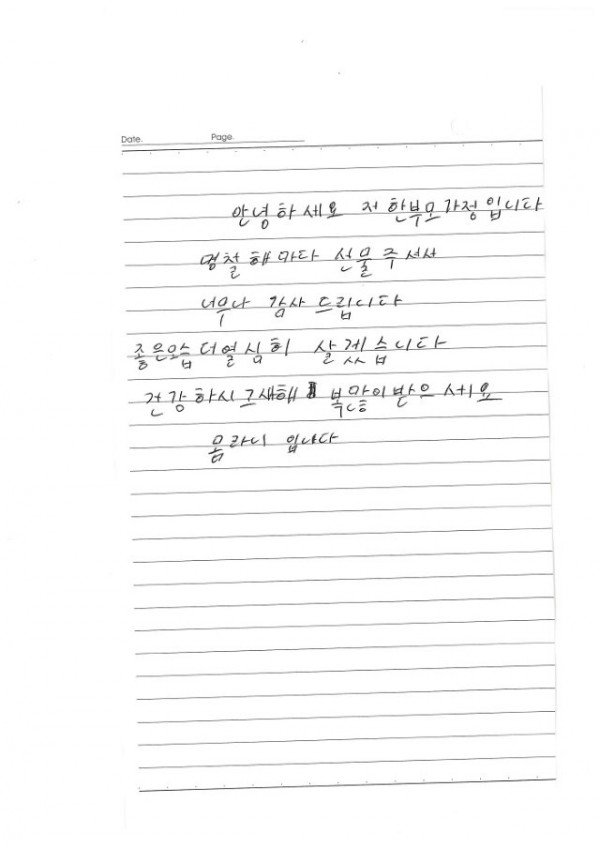 Date. Page.
안녕하세요 저 한부모가정입니다
명절해마다 선물주셔서
너무나 감사드립니다
좋은모습 더열심히 살겠습니다
건강하시고새해 복많이받으세요
몸라니 입니다